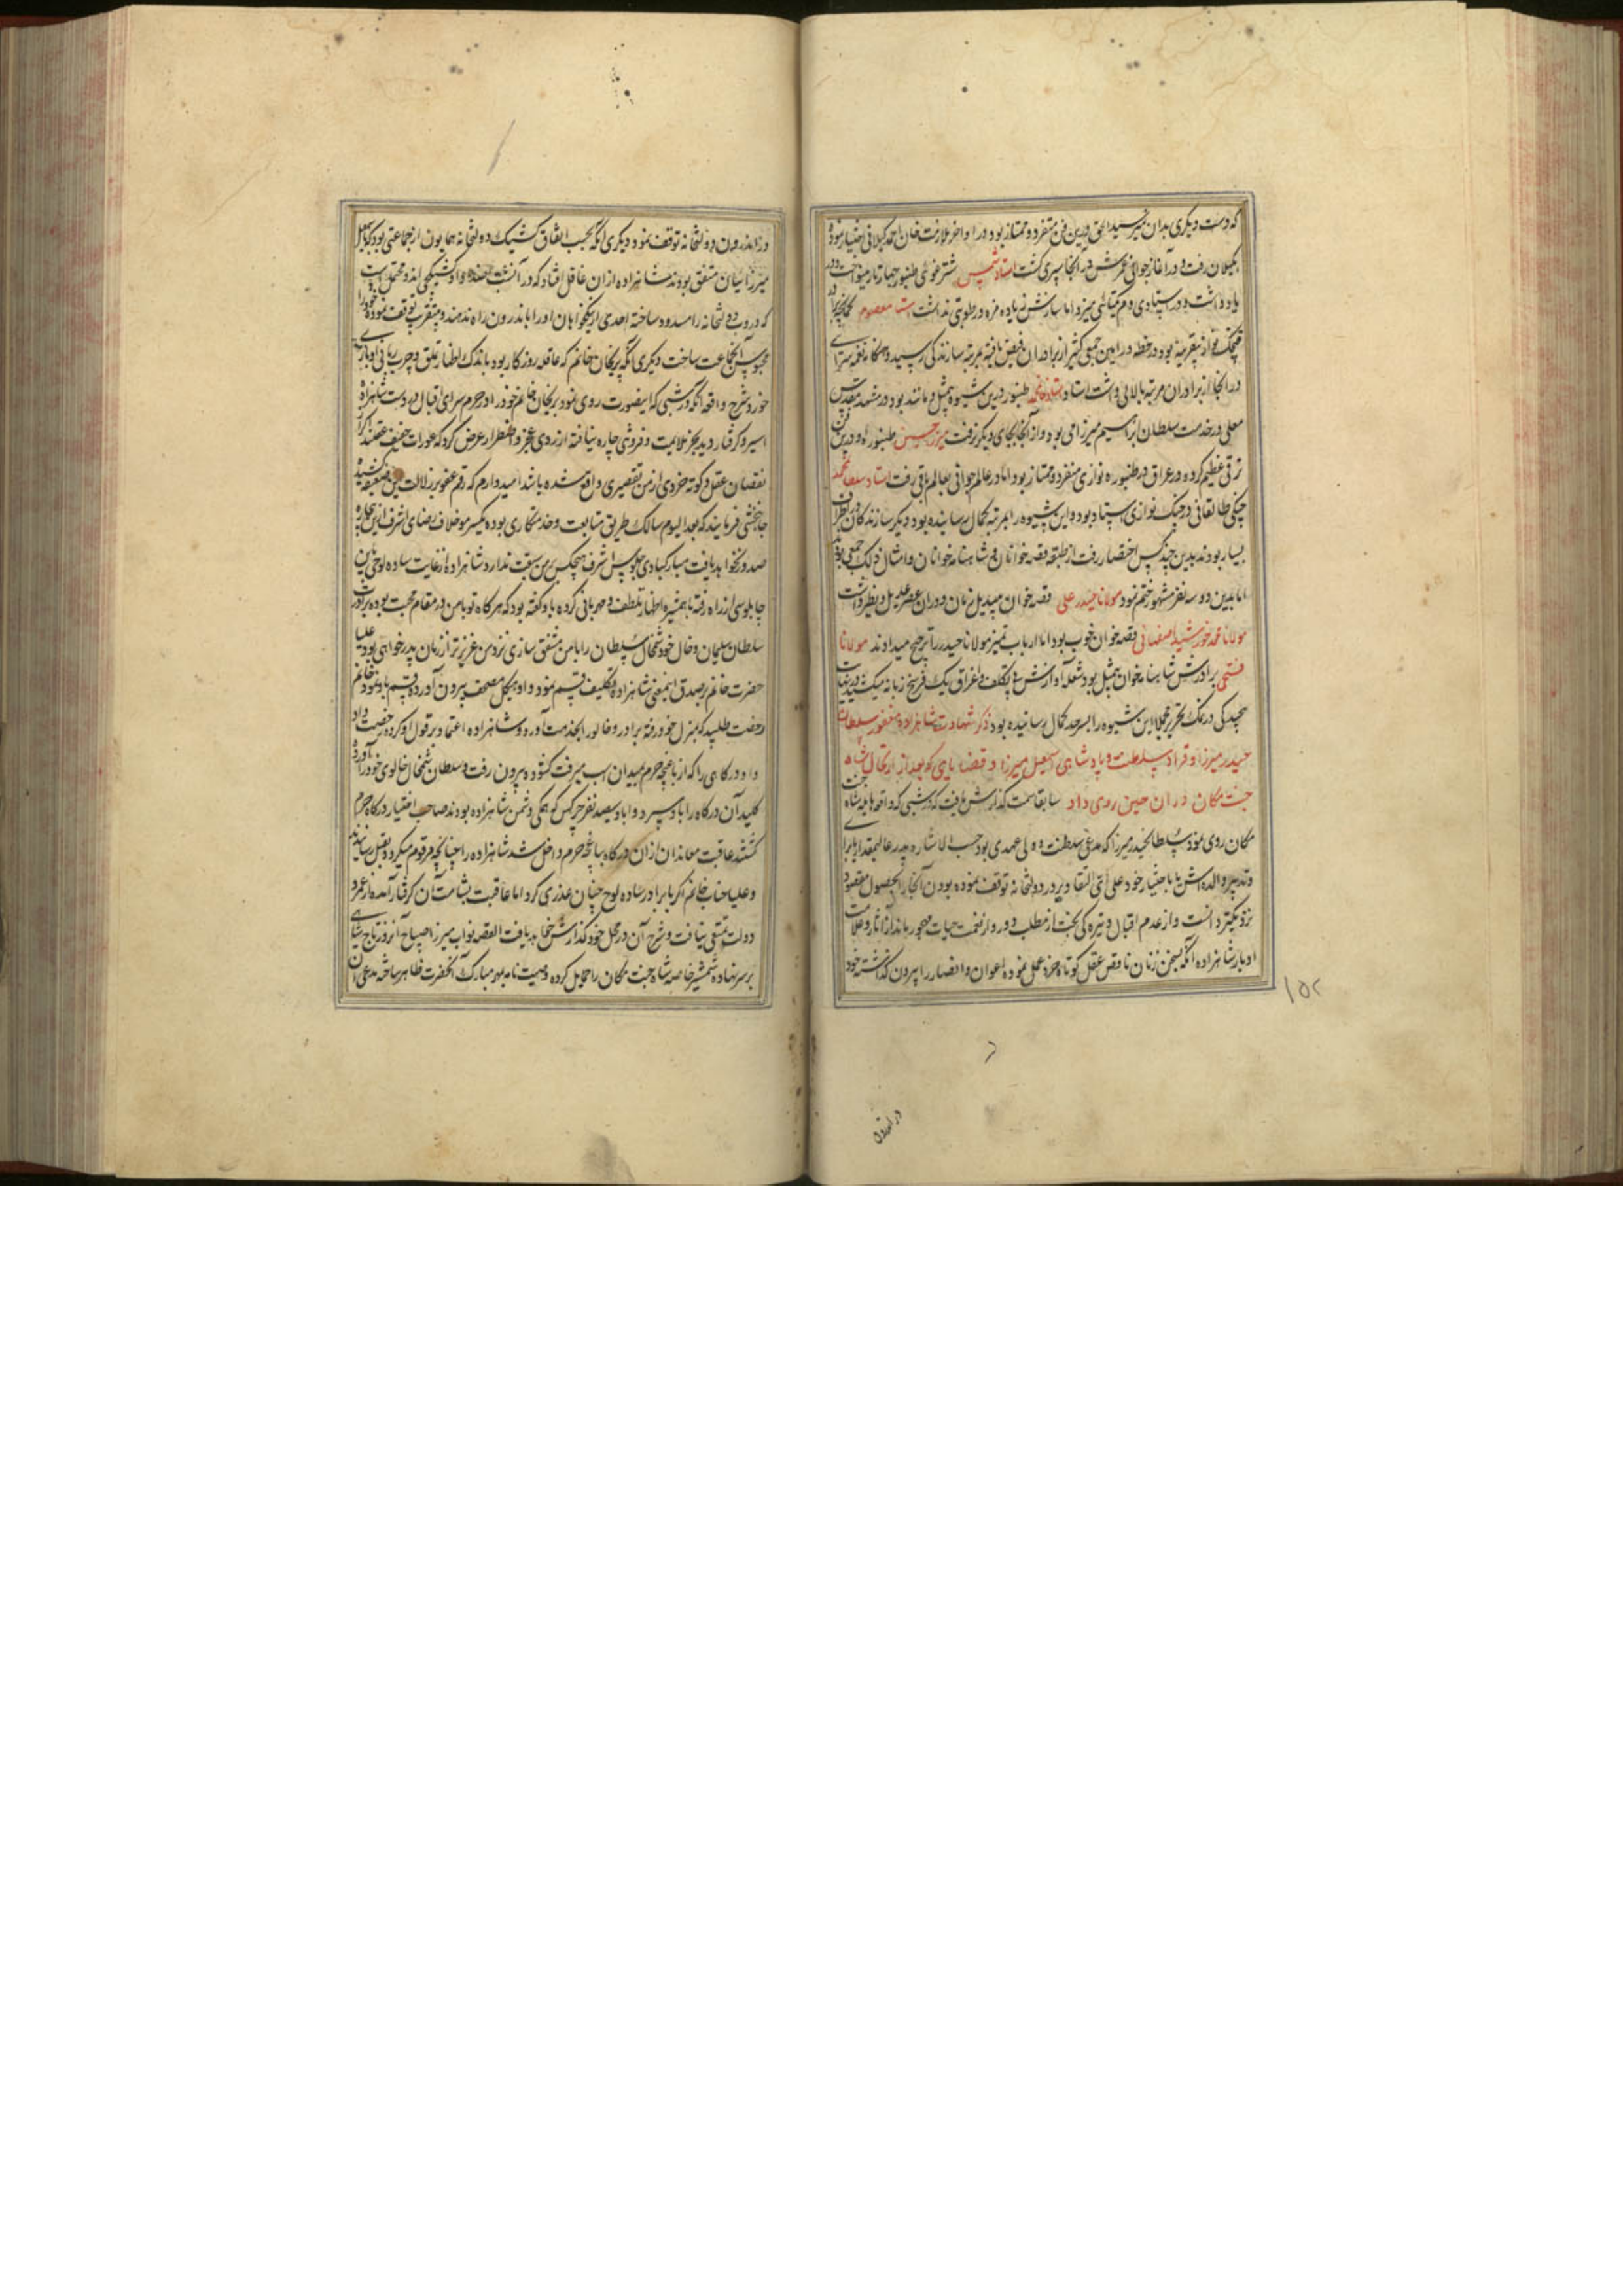 که دست دیگری بدان نمیرسید الحق درین فن متفرد و ممتاز بود در اواخر ملازمت خان احمد گیلانی اختیار نموده
بگیلان رفت و در آغاز جوانی عمرش در آنجا سپری گشت استاد شمس شترغوئی طنبور چهارتار مینواخت و در
یاد داشت و در استادی دم یکتائی میزد اما سازش زیاده مزه و رطوبتی نداشت استاد معصوم کمانچه
قیچک نواز بیقرینه بود در خطه ورامین جمعی کثیر از برادران فیض یافته بمرتبه سازندگی رسید و هنگامه نغمه سرای
در آنجا از برادران مرتبه بالائی داشت استاد طنبور درین شیوه بیمثل و مانند بود در مشهد مقدس
معلی در خدمت سلطان ابراهیم میرزا می بود و از آنجا بجای دیگر نرفت میرزا حسین طنبوره او درین فن
ترقی عظیم کرده در عراق در طنبوره نوازی منفرد و ممتاز بود اما در عالم جوانی بعالم باقی رفت استاد سلطان محمد
چنگی طالقانی در چنگ نوازی استاد بود و این شیوه را بمرتبه کمال رسانیده بود دیگر سازندگان
بسیار بودند بدین چند کس اختصار رفت از طبقه قصه خوانان و شاهنامه خوانان و امثال ذلک جمعی بودند
اما بدین دو سه نفر مشهور ختم نمود مولانا حیدر علی قصه خوان بیبدیل زمان و دوران عصر عدیل و نظیر نداشت
مولانا محمد خورشید اصفهانی قصه خوان خوب بود اما ارباب تمیز مولانا حیدر را ترجیح میدادند مولانا
فتحی برادرش شاهنامه خوان بیمثل بود شعله آوازش بی تکلف و اغراق یک فرسخ زبانه میکشید در نهایت
بجیدگی در نمک تحریر مجملا این شیوه را بسرحد کمال رسانیده بود ذکر شهادت شاهزاده مغفور سلطان
حیدر میرزا و قرار سلطنت و پادشاهی اسمعیل میرزا و قضایای که بعد از ارتحال شاه
جنت مکان در آن حین روی داد سابقا سمت گذارش یافت که در شبی که واقعه هایله شاه جنت
مکان روی نمود سلطان حیدر میرزا که مدعی سلطنت و ولی عهدی بود حسب الاشاره پدر عالیمقدار یا برای
و تدبیر والده اش یا باختیار خود علی ای التقادیر در دولتخانه توقف نموده بودن آنجا را بحصول مقصود
نزدیکتر دانست و از عدم اقبال و تیره گی بخت از مطلب دور و از نعمت حیات مهجور ماند از آثار و علامت
ادبار شاهزاده آنکه بسخن زنان ناقص عقل کوتاه خرد عمل نموده اعوان و انصار را بیرون گذاشته خود
۱۵۲
در اندرون
در اندرون دولتخانه توقف نمود و دیگری آنکه بحسب اتفاق کشیک دولتخانه همایون از جماعتی بود که با اسمعیل
میرزائیان متفق بودند شاهزاده از آن غافل افتاد که در آن شب و محتمل است
که دروب دولتخانه را مسدود ساخته احدی از نیکخواهان او را باندرون راه ندهند و متفرق توقف نموده خود را
محبوس آنجماعت ساخت دیگری آنکه پریخان خانم که عاقله روزگار بود باندک اظهار تملق و چرب زبانی او بازی
خورد شرح واقعه آنکه در شبی که اینصورت روی نمود پریخان خانم خود را در حرم سرای اقبال در دست شاهزاده
اسیر و گرفتار دید بجز ملایمت و فروتنی چاره نیافته از روی عجز و اضطرار عرض کرد که عورات ضعیف عقلند اگر از
نقصان عقل و کوته خردی از من تقصیری واقع شده باشد امیدوارم که رقم عفو بر زلات این ضعیفه کشیده
جانبخشی فرمایند که بعد الیوم سالک طریق متابعت و خدمتکاری بوده یکسر مو خلاف رضای اشرف ازین بیچاره
صدور نخواهد یافت مبارکبادی جلوس اشرف هیچکس بر من سبقت ندارد شاهزاده از غایت ساده لوحی باین
چاپلوسی از راه رفته با همشیره اظهار تلطف و مهربانی کرده باو گفته بود که هرگاه تو با من در مقام محبت بوده برادر
سلطان سلیمان و خال خود شمخال سلطان را با من متفق سازی نزد من عزیزتر از زمان پدر خواهی بود علیا
حضرت خانم بر صدق اینمعنی شاهزاده تکلیف قسم نمود و او هیکل مصحف بیرون آورده قسم یاد نمود خانم
رخصت طلبید که بمنزل خود رفته برادر و خالو را بخدمت آورد و شاهزاده اعتماد بر قول او کرده رخصت داد
و او درگاهی را که از باغچه حرم بمیدان اسب میرفت گشوده بیرون رفت و سلطان شمخال خالوی خود را آورده
کلید آن درگاه را باو سپرد و او با دویست سیصد نفر چرکس که همگی دشمن شاهزاده بودند صاحب اختیار درگاه حرم
گشتند عاقبت معاندان از آن درگاه بباغچه حرم داخل شد شاهزاده را چنانچه مرقوم میگردد بقتل رسانیدند
و علیا جناب خانم اگر با برادر ساده لوح چنان غدری کرد اما عاقبت بشامت آن گرفتار آمده از عمر و
دولت تمتعی نیافت و شرح آن در محل خود گذارش خواهد یافت القصه نواب میرزا صباح آنروز تاج شاهی
بر سر نهاده شمشیر خاصه شاه جنت مکان را حمایل کرده وصیت نامه بمهر مبارک آنحضرت ظاهر ساخته مدعی آن